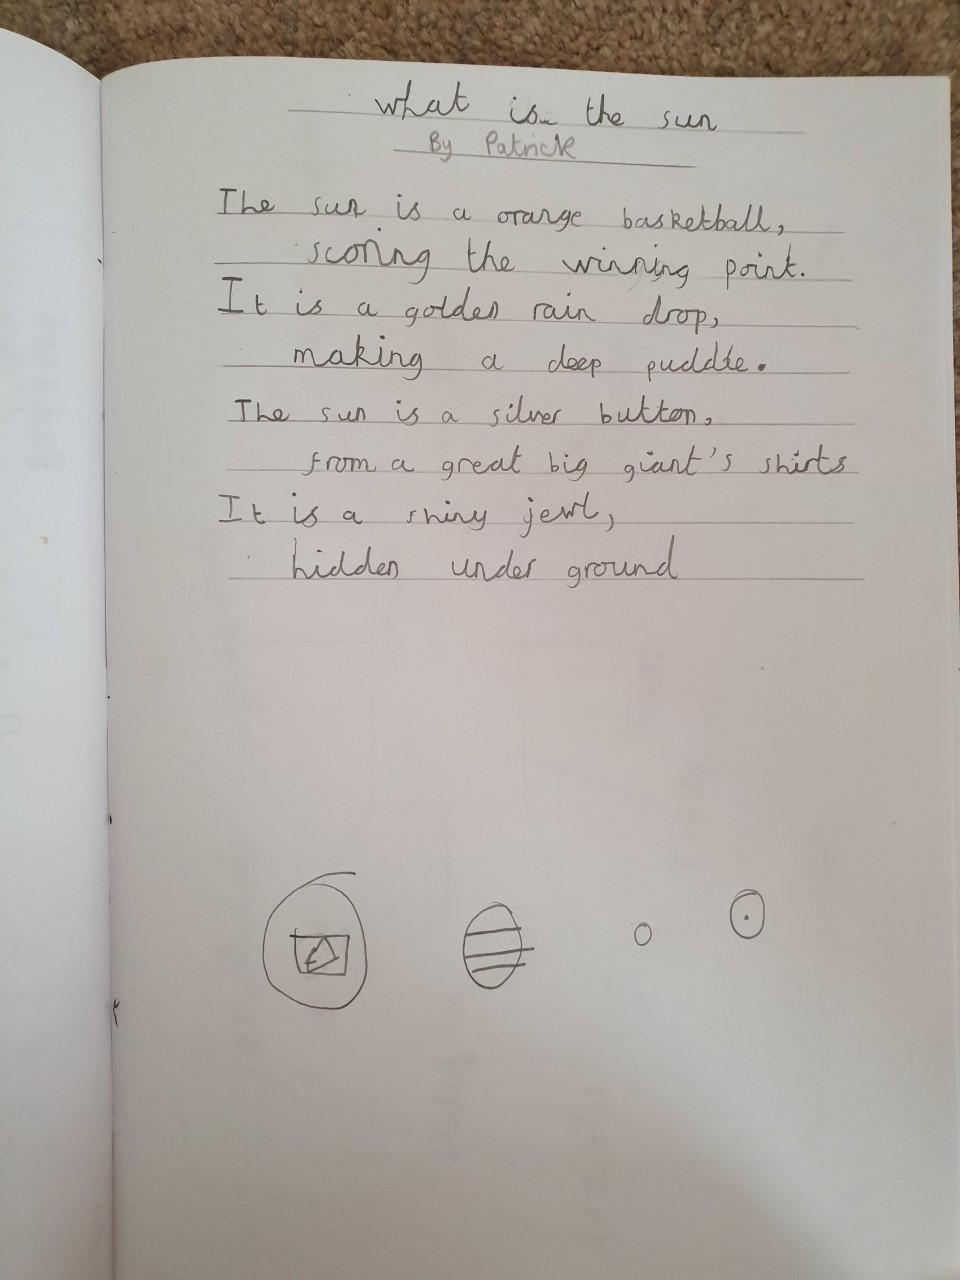 What is the sun
By Patrick
The sun is a orange basketball,
scoring the winning point.
It is a golden rain drop,
making a deep puddle.
The sun is a silver button,
from a great big giant's shirts
It is a shiny jewl,
hidden under ground